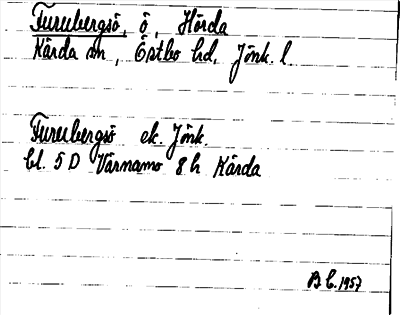 Furubergsö, ö, Hörda
Kärda sn, Östbo hd, Jönk. l.
Furubergsö ek. Jönk.
bl. 5 D Värnamo 8 h Kärda
B C. 1957